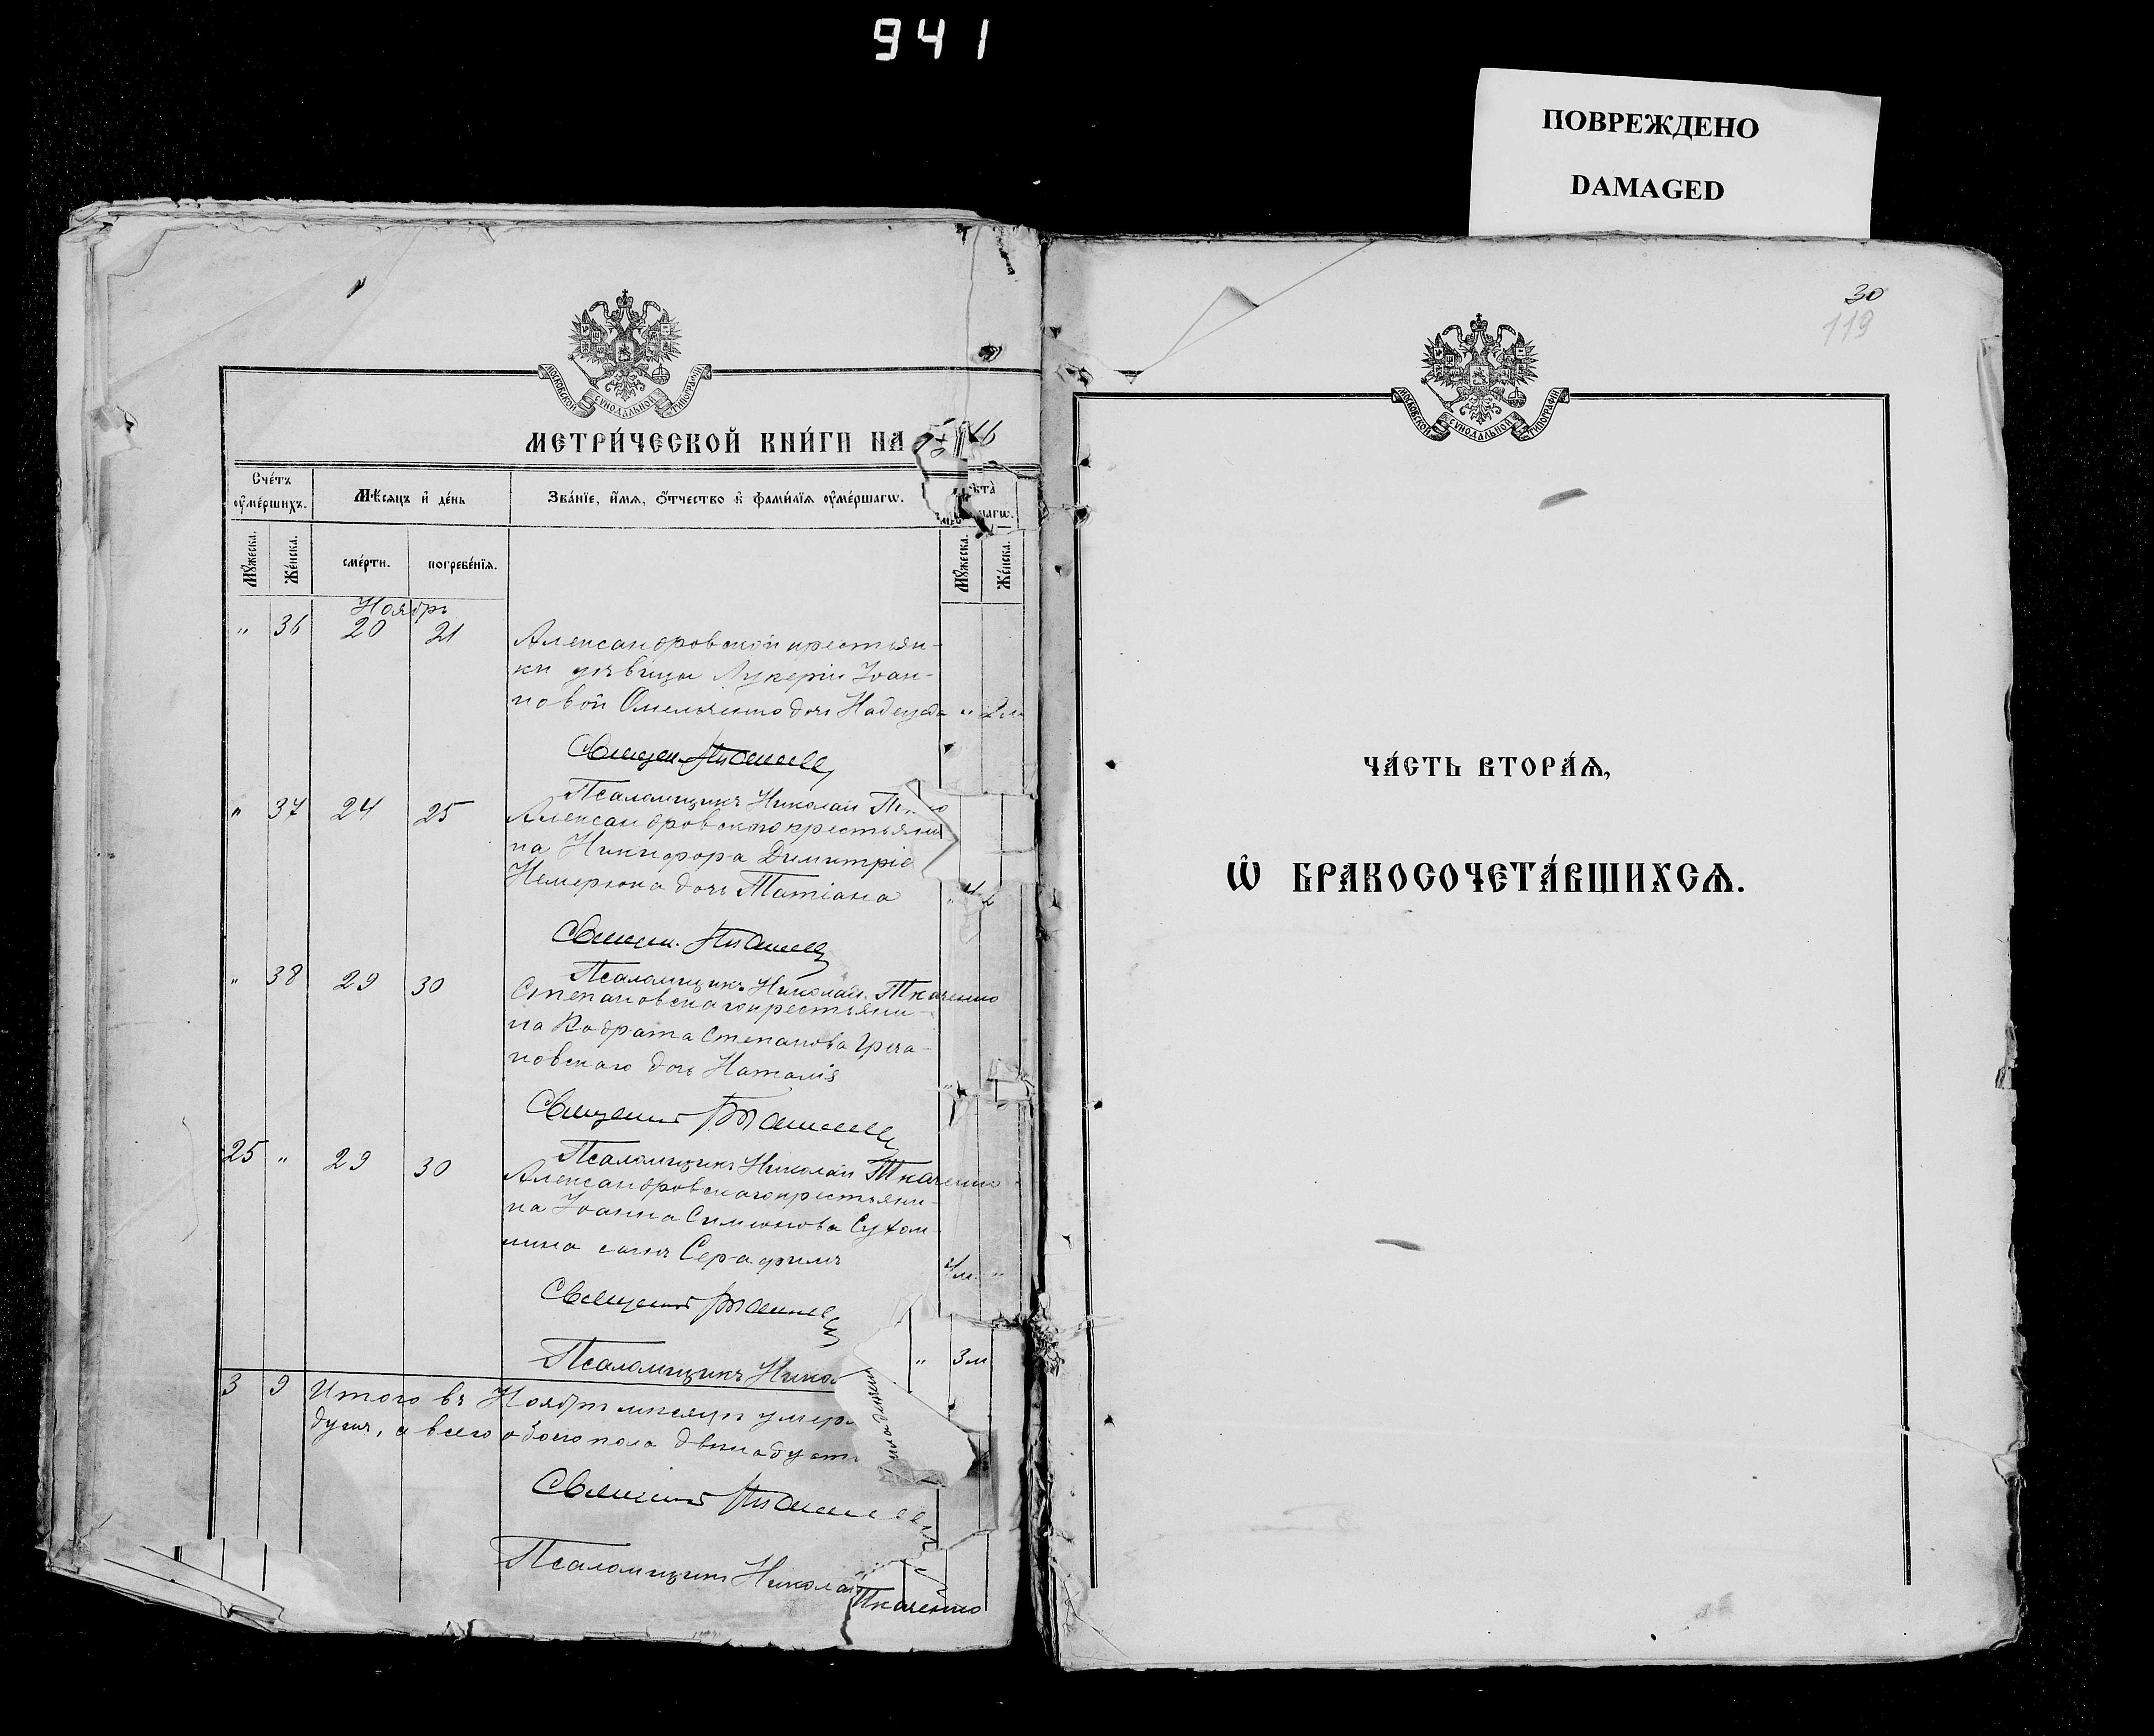 941
ПОВРЕЖДЕНО
DAMAGED
МОСКОВСКОЙ СѴНОДАЛЬНОЙ ТИПОГРАФІИ
МЕТРИ́ЧЕСКОЙ КНИ́ГИ НА
Сче́тъ ᲂу҆ме́ршихъ.
Мѣсяцъ и҆ де́нь
Зва́нїе, и҆́мѧ, ѻ҆́тчество и҆ фами́лїѧ ᲂу҆ме́ршагѡ.
Мꙋ́жеска.
Же́нска.
сме́рти.
погребе́нїѧ.
Мꙋ́жеска.
Же́нска.
Ноябрь
" 36 20 21
Александровской крестьян-
ки дѣвицы Лукеріи Іоан-
новой Омельченко дочь Надежда "
Священ.
Псаломщикъ Николай
" 37 24 25
Александровского крестьяни
на Никифора Димитріе
Немерюка дочь Татіана
Священ.
Псаломщикъ Николай Ткаченко
" 38 29 30
Степановскаго крестьяни-
на Кодрата Степанова Греча-
новскаго дочь Наталія
Священник
Псаломщикъ Николай Ткаченко
25 " 29 30
Александровскаго крестьяни-
на Іоанна Симонова Сухом-
лина сынъ Серафимъ 4м. "
Священник
" 3м
Псаломщикъ Никол
3 9 Итого въ Ноябрѣ мѣсяцѣ умер
душъ, а всего обоего пола двѣнадцать
Священник
Псаломщикъ Николай
Ткаченко
30
119
МОСКОВСКОЙ СѴНОДАЛЬНОЙ ТИПОГРАФІИ
ЧА́СТЬ ВТОРА́Ѧ,
Ѡ҆ БРАКОСОЧЕТА́ВШИХСѦ.